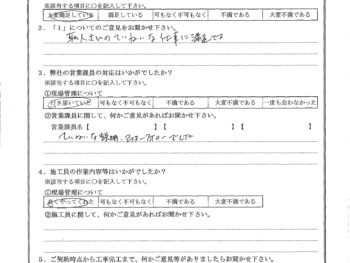 ※該当する項目に○を記入して下さい。
大変満足している 満足している 可もなく不可もなく 不満である 大変不満である
2.「1」についてのご意見をお聞かせ下さい。
職人さんのていねいな仕事に満足です
3.弊社の営業課員の対応はいかがでしたか?
※該当する項目に○を記入して下さい。
①現場管理について
行き届いていた 可もなく不可もなく 不満である 大変不満である 一度も会わなかった
②営業課員に関して、何かご意見があればお聞かせ下さい。
営業課員名【 】【 】
ていねいな説明
4.施工員の作業内容等はいかがでしたか?
※該当する項目に○を記入して下さい。
①現場管理について
良くやってくれた 可もなく不可もなく 不満である 大変不満である
②施工員に関して、何かご意見があればお聞かせ下さい。
5.ご契約時点から工事完工まで、何かご意見等がありましたらお聞かせ下さい。